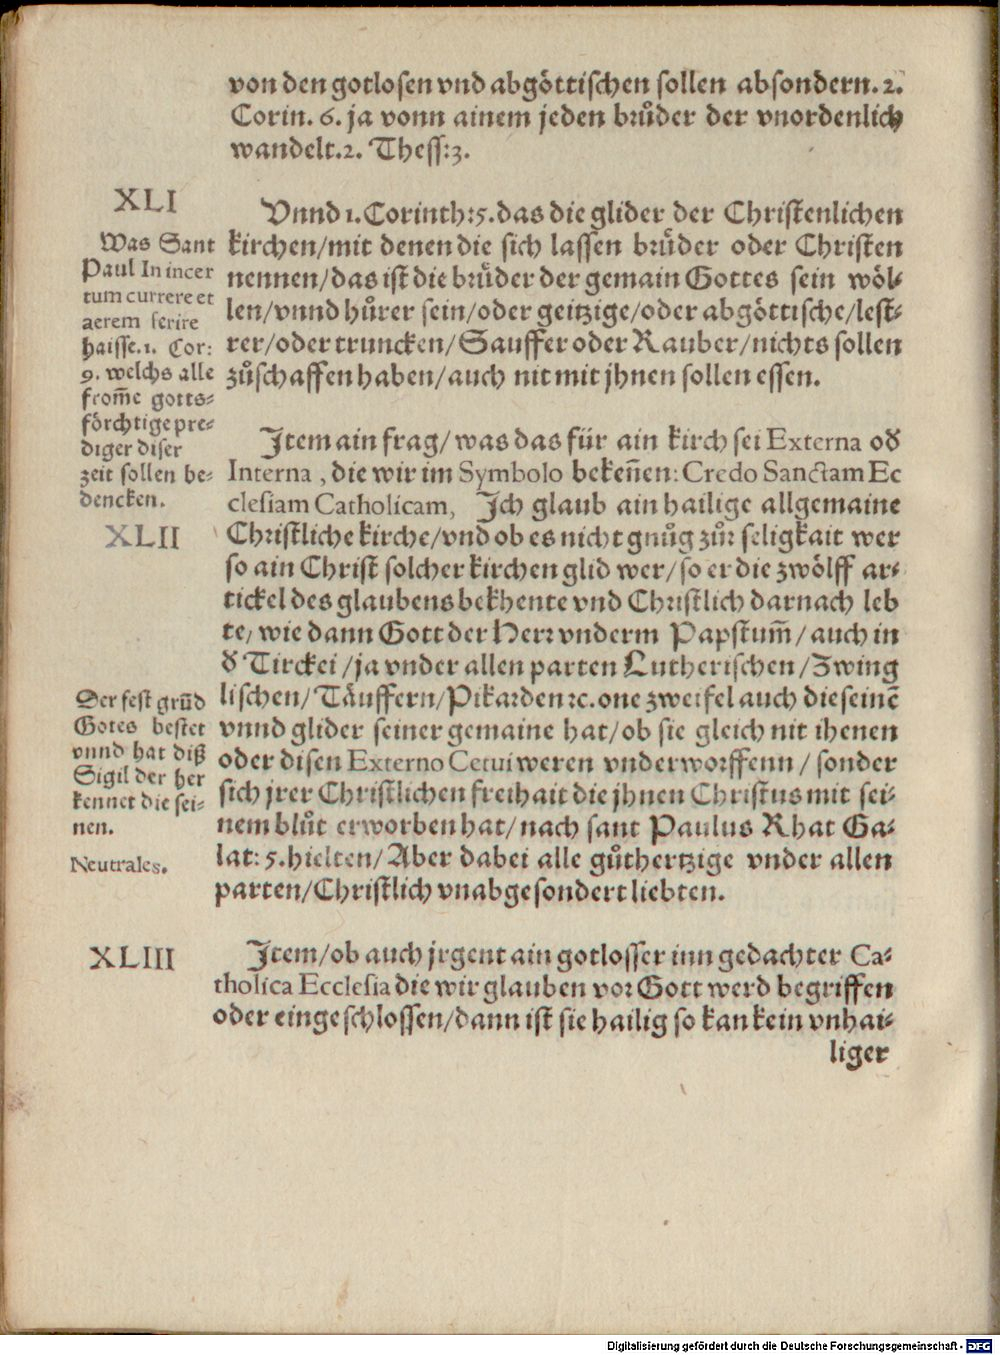 von den gotlosen vnd abgöttischen sollen absondern. 2.
Corin. 6. ja vonn ainem jeden brůder der vnordenlich
wandelt. 2. Thess: 3.
XLI
Was Sant
Paul In incer
tum currere et
aerem ferire
haisse. 1. Cor:
9. welchs alle
from̃e gotts⸗
förchtige pre⸗
diger diser
zeit sollen be⸗
dencken.
Vnnd 1. Corinth: 5. das die glider der Christenlichen
kirchen/mit denen die sich lassen brůder oder Christen
nennen/das ist die brůder der gemain Gottes sein wöl⸗
len/vnnd hůrer sein/oder geitzige/oder abgöttische/lest⸗
rer/oder truncken/Sauffer oder Rauber/nichts sollen
zůschaffen haben/auch nit mit jhnen sollen essen.
XLII
Item ain frag/was das für ain kirch sei Externa oď
Interna , die wir im Symbolo bekeñen: Credo Sanctam Ec
clesiam Catholicam, Ich glaub ain hailige allgemaine
Christliche kirche/vnd ob es nicht gnůg zůr seligkait wer
so ain Christ solcher kirchen glid wer/so er die zwölff ar⸗
tickel des glaubens bekhente vnd Christlich darnach leb
te/wie dann Gott der Herr vnderm Papstum̃/auch in
ď Tirckei/ja vnder allen parten Lutherischen/Zwing
lischen/Täuffern/Pikarden ꝛc. one zweifel auch die seinẽ
vnnd glider seiner gemaine hat/ob sie gleich nit ihenen
oder disen Externo Cetui weren vnderworffenn/sonder
sich jrer Christlichen freihait die jhnen Christus mit sei⸗
nem blůt erworben hat/nach sant Paulus Rhat Ga⸗
lat: 5. hielten/Aber dabei alle gůthertzige vnder allen
parten/Christlich vnabgesondert liebten.
Der fest grũd
Gotes bestet
vnnd hat diß
Sigil der her
kennet die sei⸗
nen.
Neutrales.
XLIII
Item/ob auch jrgent ain gotlosser inn gedachter Ca⸗
tholica Ecclesia die wir glauben vor Gott werd begriffen
oder eingeschlossen/dann ist sie hailig so kan kein vnhai⸗
liger
Digitalisierung gefördert durch die Deutsche Forschungsgemeinschaft - DFG